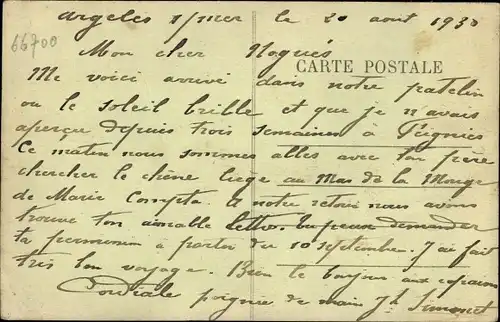 Argeles s/mer le 20 août 1930
66700
Mon cher Noguès
CARTE POSTALE
Me voici arrivé dans notre patelin
ou le soleil brille et que je n'avais
aperçu depuis trois semaines à
Ce matin nous sommes allés avec ton frère
chercher le chêne liege au Mas de la
de Marie Compta. A notre retour nous avons
trouvé ton aimable lettre. Tu peux demander
ta permission à partir du 10 septembre. J'ai fait
très bon voyage. Bien le bonjour aux copains
Cordiale poignée de main Jh Simonet